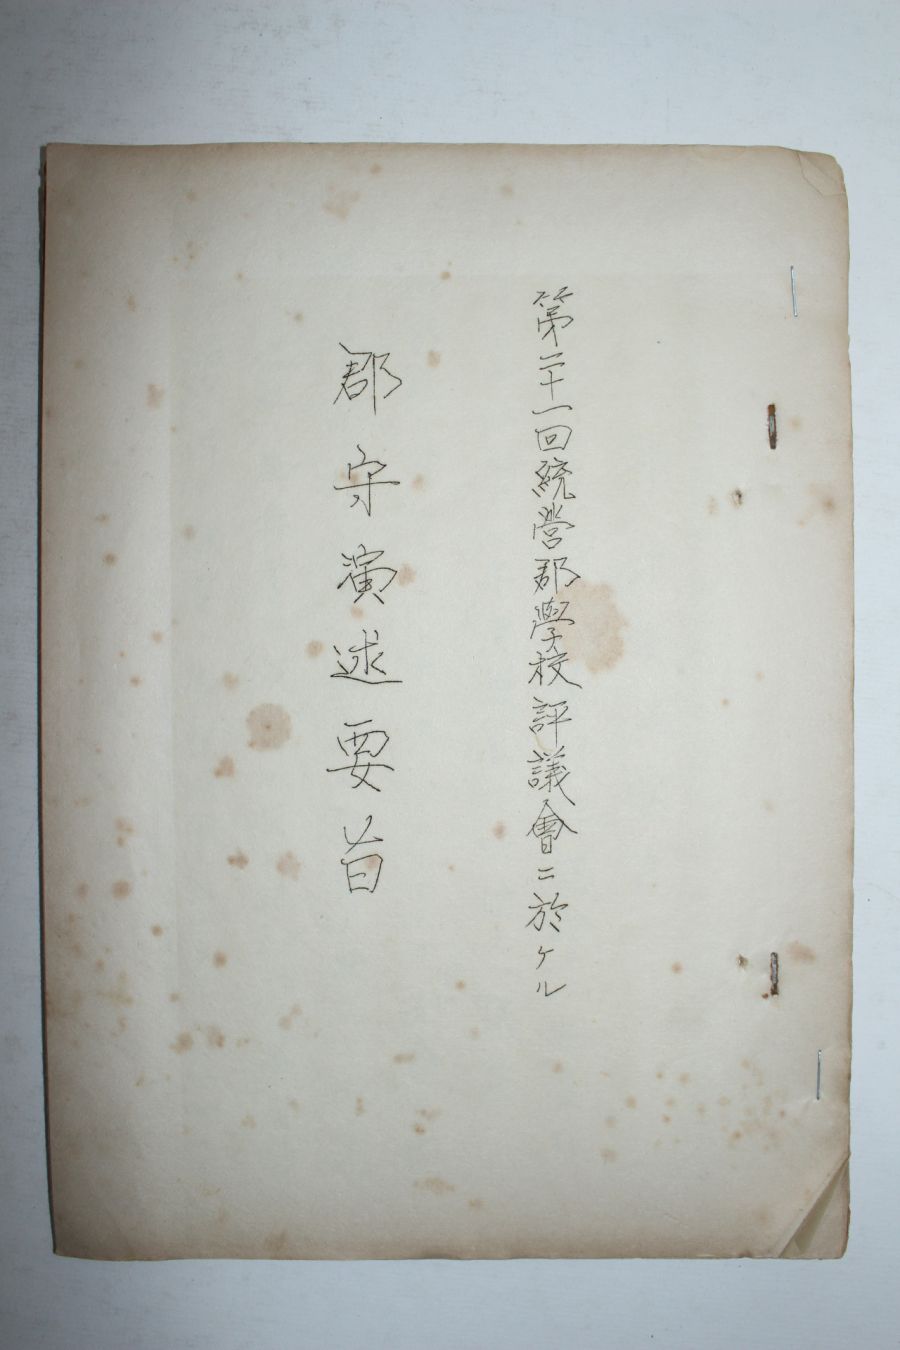 第二十一回統営郡學校評議會ニ於ケル
郡守演述要旨